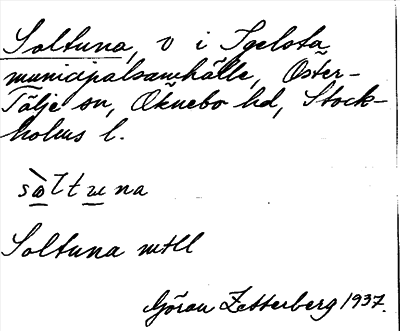 Soltuna, v i Igelsta
municipalsamhälle, Öster-
Tälje sn, Öknebo hd, Stock-
holms l.
sòltuna
Soltuna mtll
Göran Zetterberg 1937.